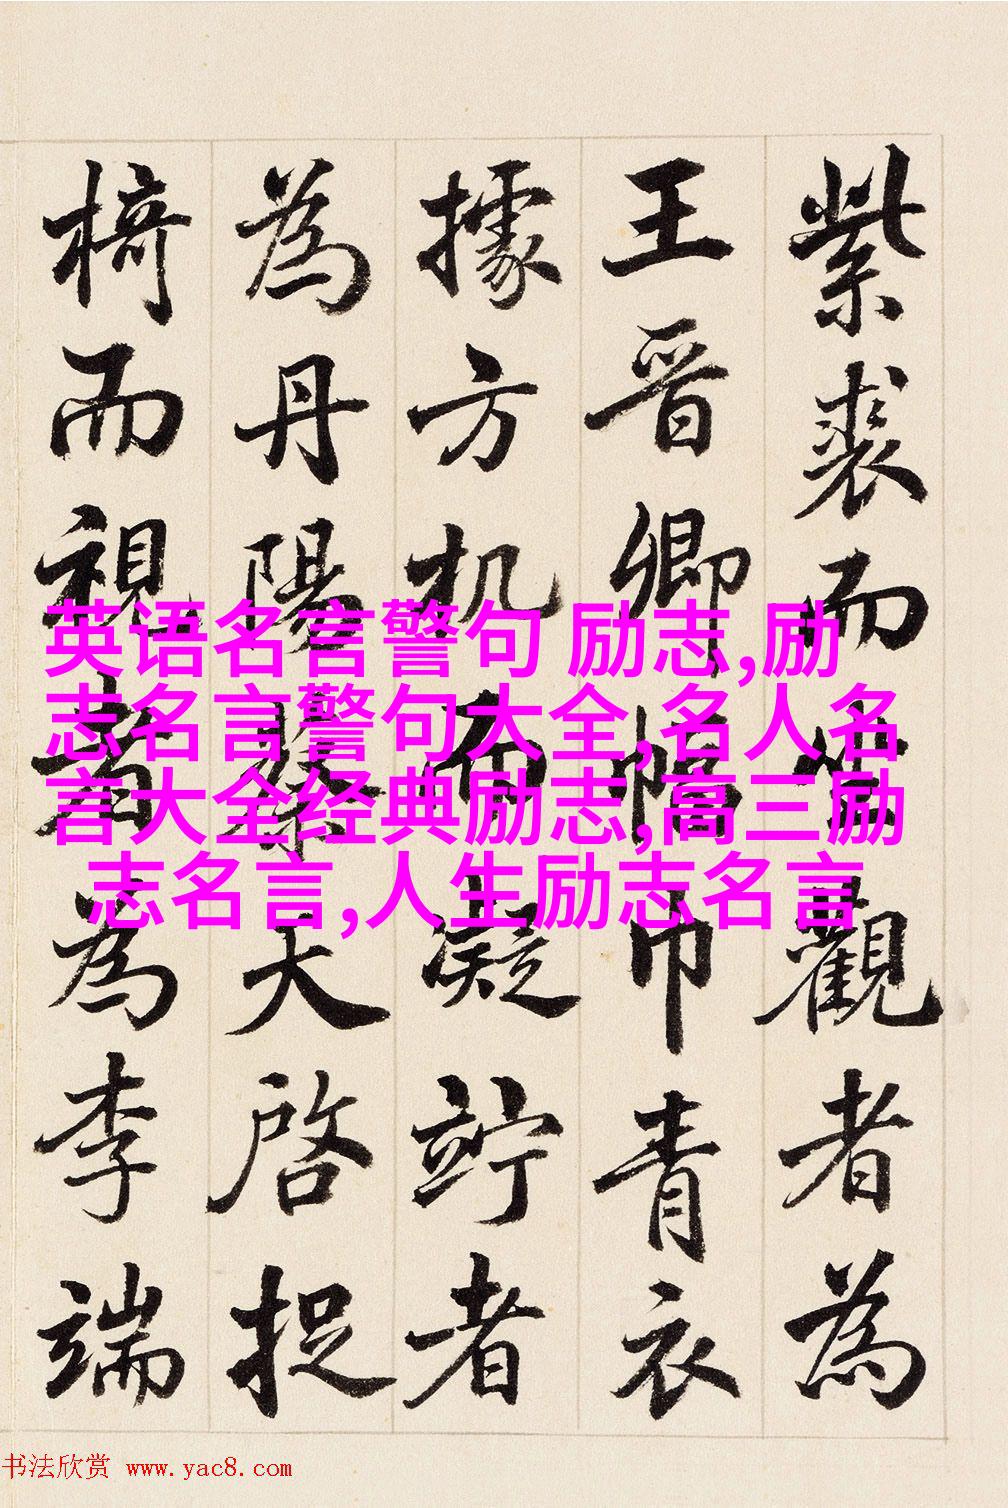 紫裘而坐觀者為
王晋卿幅巾青衣
據方机而凝竚者
為丹陽蔡大啓捉
椅而視者為李端
英语名言警句 励志,励
志名言警句大全,名人名
言大全经典励志,高三励
志名言,人生励志名言
书法欣赏 www.yac8.com